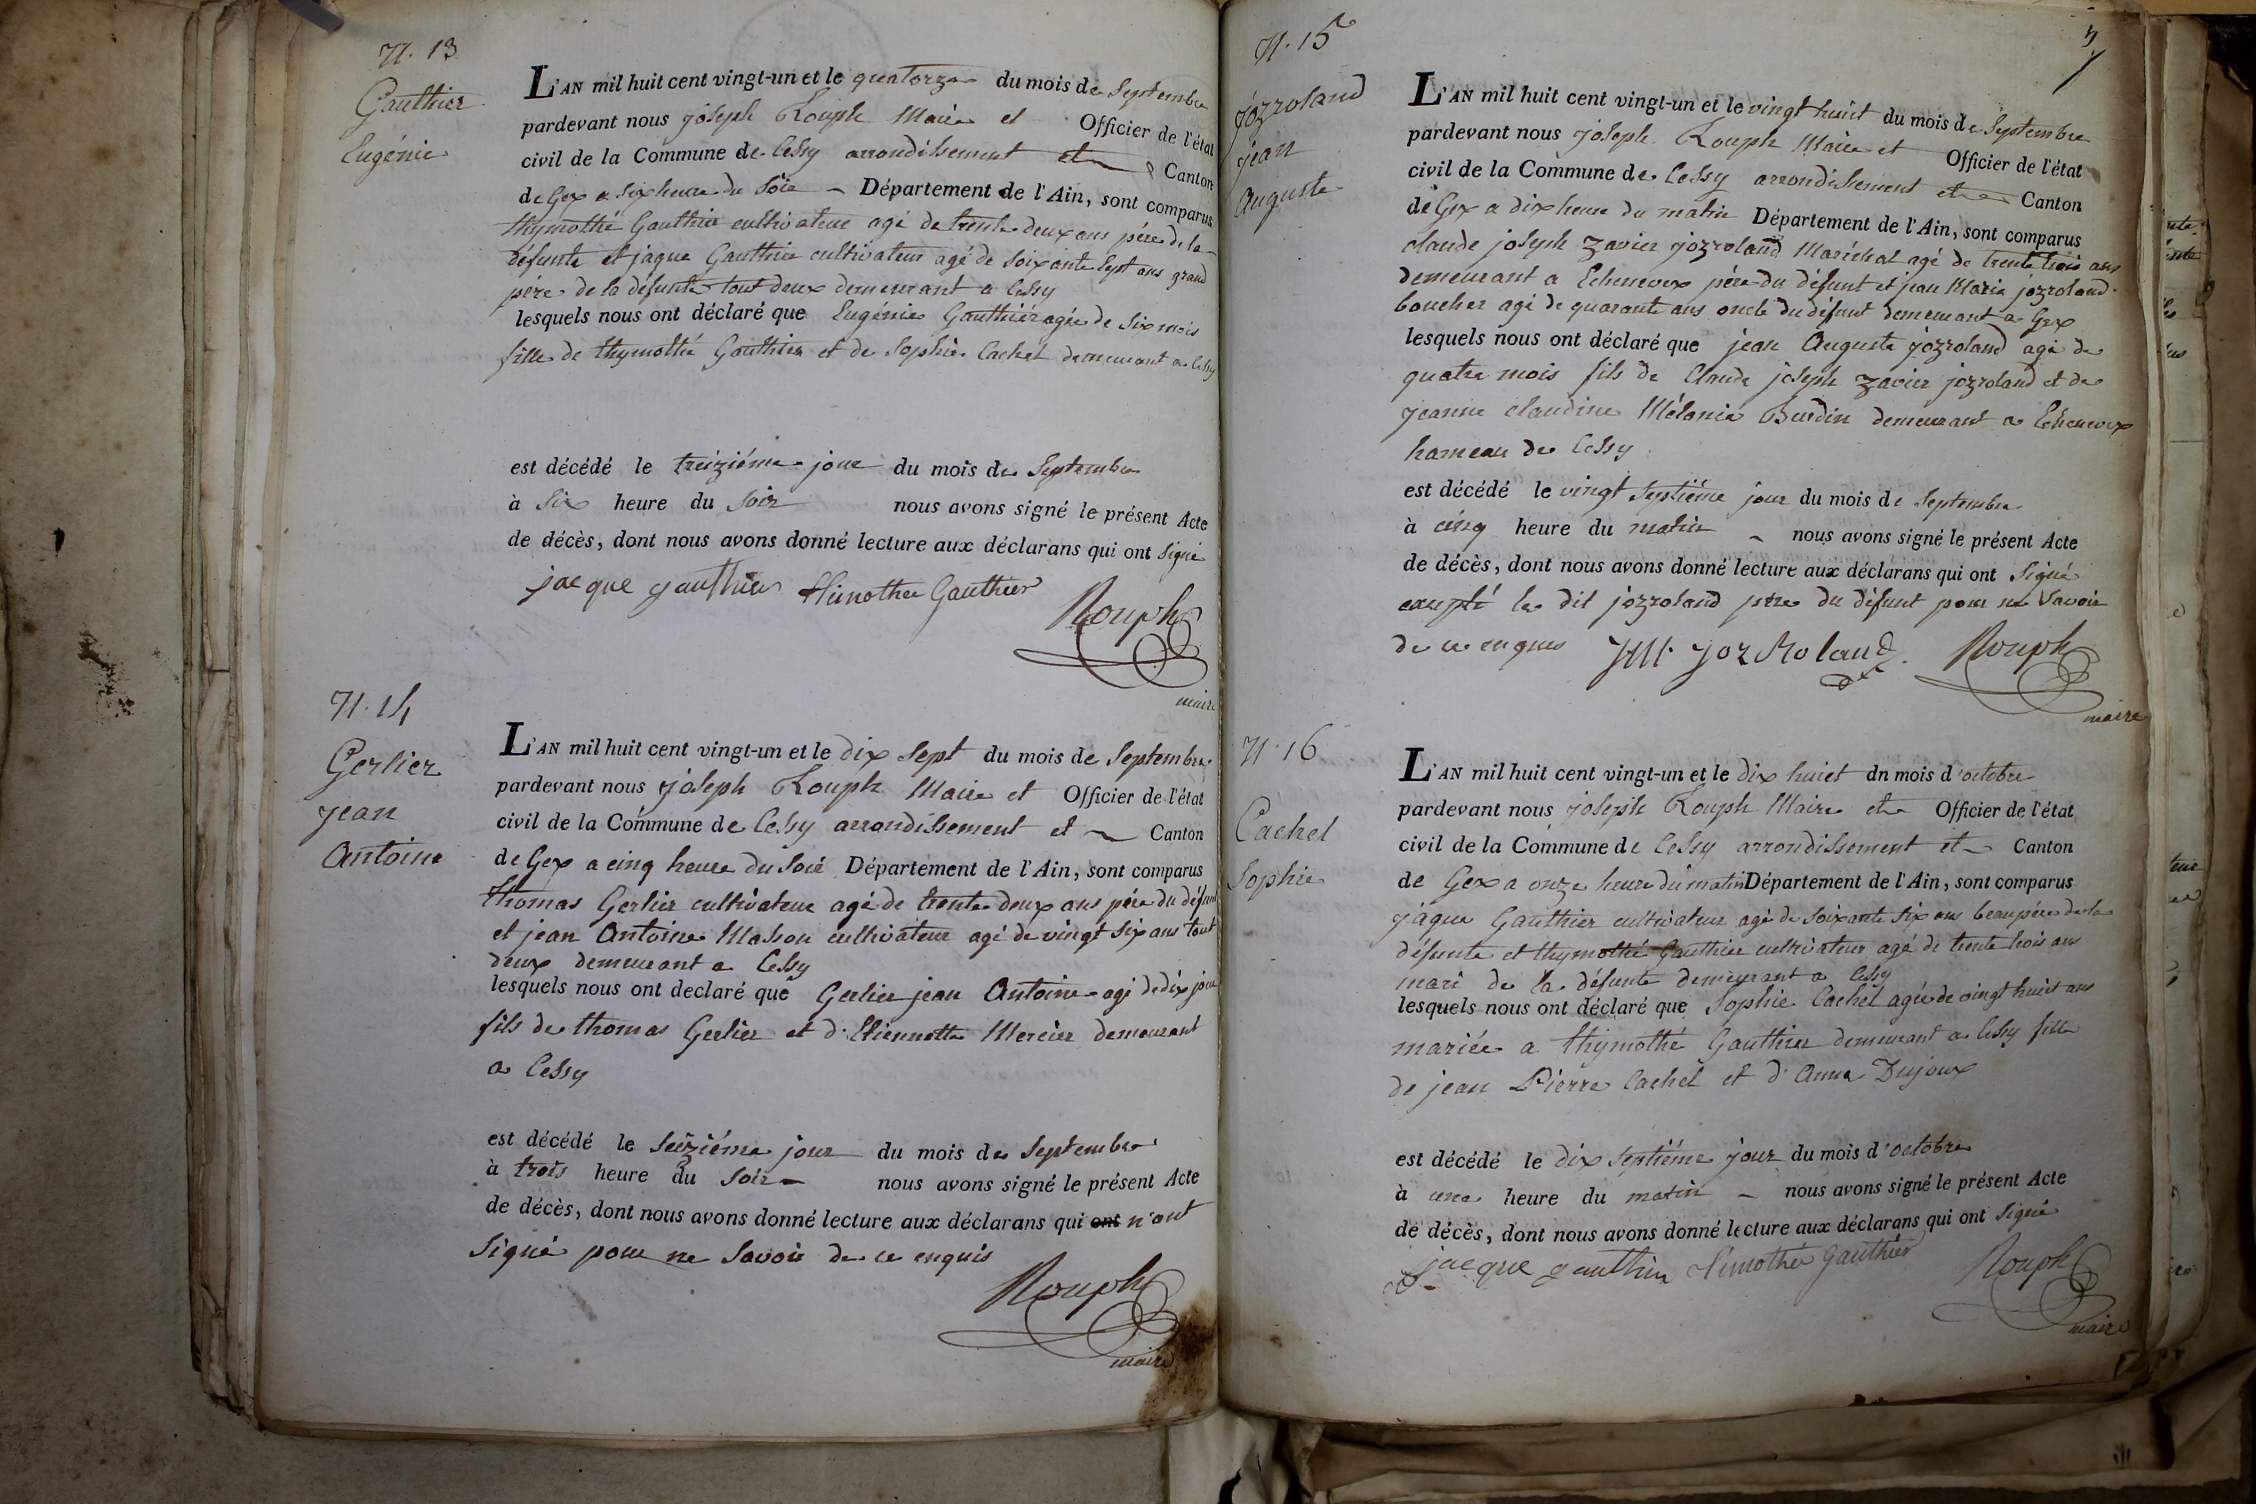 N. 13
Gauthier
Eugénie
L'AN mil huit cent vingt-un et le quatorze du mois de Septembre
pardevant nous joseph Rouph Maire et Officier de l'état
civil de la Commune de Cessy arrondissement et Canton
de Gex a Six heure du Soir Département de l'Ain, sont comparus
thymothé Gauthier cultivateur agé de trente deux ans pére de la
défunte et jaque Gauthier cultivateur agé de Soixante Sept ans grand
pére de la défunte tout deux demeurant a Cessy
lesquels nous ont déclaré que Eugénie Gauthier agée de Six mois
fille de thymothé Gauthier et de Sophie Cachet demeurant a Cessy
est décédé le treiziéme jour du mois de Septembre
à Six heure du Soir nous avons signé le présent Acte
de décès, dont nous avons donné lecture aux déclarans qui ont Signé
jacque gauthier thimothée Gauthier
Rouph
maire
N. 14
Gerlier
jean
Antoine
L'AN mil huit cent vingt-un et le dix Sept du mois de Septembre
pardevant nous joseph Rouph Maire et Officier de l'état
civil de la Commune de Cessy arrondissement et Canton
de Gex a cinq heure du Soir Département de l'Ain, sont comparus
thomas Gerlier cultivateur agé de trente deux ans pére du défunt
et jean Antoine Masson cultivateur agé de vingt Six ans tout
deux demeurant a Cessy
lesquels nous ont declaré que Gerlier jean Antoine agé de dix jour
fils de thomas Gerlier et d'Etiennette Mercier demeurant
a Cessy
est décédé le Seiziéme jour du mois de Septembre
à trois heure du Soir nous avons signé le présent Acte
de décès, dont nous avons donné lecture aux déclarans qui ont n'ont
Signé pour ne Savoir de ce enquis
Rouph
maire
N. 15
jozroland
jean
Auguste
L'AN mil huit cent vingt-un et le vingt huit du mois de Septembre
pardevant nous joseph Rouph Maire et Officier de l'état
civil de la Commune de Cessy arrondissement et Canton
de Gex a dix heure du matin Département de l'Ain, sont comparus
claude joseph zavier jozroland Maréchal agé de trente trois ans
demeurant a Echenevex pére du défunt et jean Marie jozroland
boucher agé de quarante ans oncle du défunt demeurant a Gex
lesquels nous ont déclaré que jean Auguste jozroland agé de
quatre mois fils de Claude joseph zavier jozroland et de
jeanne claudine Mélanie Burdin demeurant a Echenevex
hameau de Cessy
est décédé le vingt Septiéme jour du mois de Septembre
à cinq heure du matin nous avons signé le présent Acte
de décès, dont nous avons donné lecture aux déclarans qui ont Signé
excepté le dit jozroland pére du défunt pour ne Savoir
de ce enquis JM joz Roland Rouph
maire
N. 16
Cachet
Sophie
L'AN mil huit cent vingt-un et le dix huict dn mois d'octobre
pardevant nous joseph Rouph Maire et Officier de l'état
civil de la Commune de Cessy arrondissement et Canton
de Gex a onze heure du matin Département de l'Ain, sont comparus
jaque Gauthier cultivateur agé de Soixante Six ans beaupére de la
défunte et thymothé Gauthier cultivateur agé de trente trois ans
mari de la défunte demeurant a Cessy
lesquels nous ont déclaré que Sophie Cachet agée de vingt huit ans
mariée a thymothé Gauthier demeurant a Cessy fille
de jean Pierre Cachet et d'Anna Dujoux
est décédé le dix Septiéme jour du mois d'octobre
à une heure du matin nous avons signé le présent Acte
de décès, dont nous avons donné lecture aux déclarans qui ont Signé
jacque gauthier thimothée Gauthier Rouph
maire